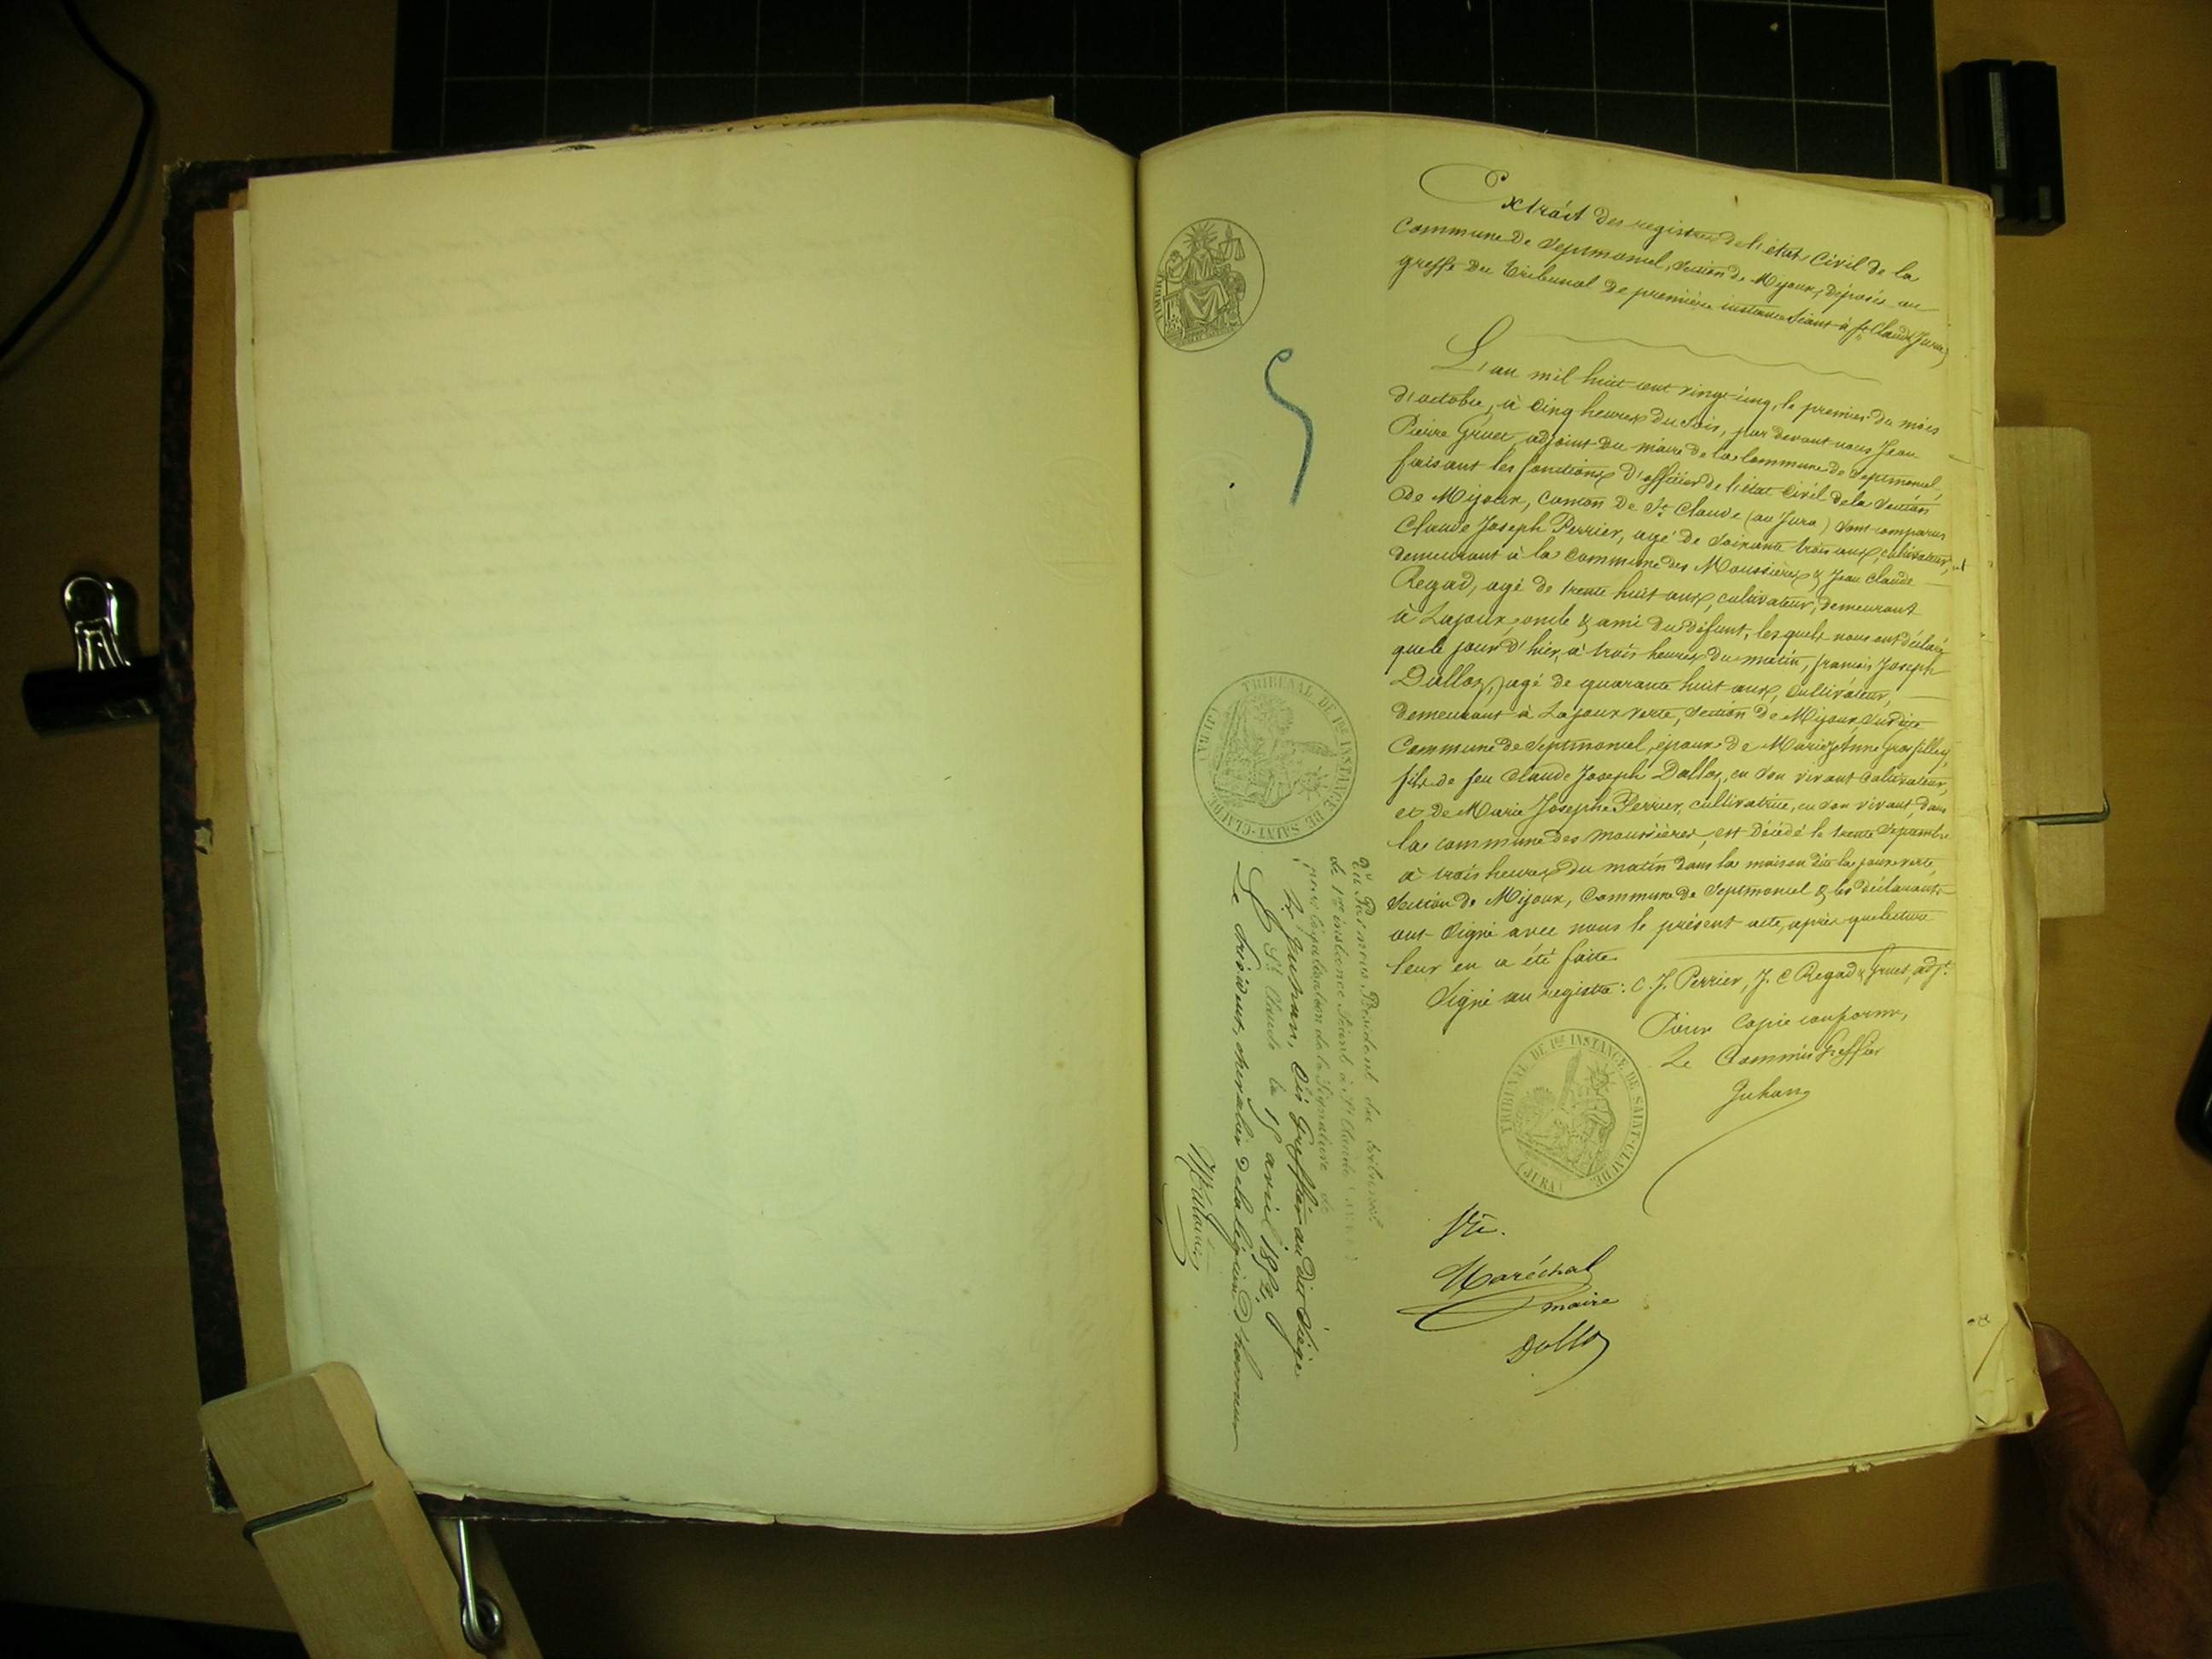 Extrait des registres de l'état Civil de la
Commune de Septmoncel, section de Mijoux, déposés au
greffe du Tribunal de première instance séant à St Claude (Jura)
L'an mil huit cent vingt-cinq, le premier du mois
d'octobre, à cinq heures du soir, par devant nous Jean
Pierre Gruet, adjoint du maire de la Commune de Septmoncel,
faisant les fonctions d'officier de l'état Civil de la Section
de Mijoux, canton de St Claude (au Jura) sont comparus
Claude Joseph Perrier, agé de soixante trois ans, cultivateur,
demeurant à la Commune des Moussières & Jean Claude
Regad, agé de trente huit ans, cultivateur, demeurant
à Lajoux, oncle & ami du défunt, lesquels nous ont déclaré
que le jour d'hier, à trois heures du matin, françois Joseph
Dalloz, agé de quarante huit ans, cultivateur,
demeurant à Lajoux verte, section de Mijoux, susdite
Commune de Septmoncel, époux de Marie Anne Grosfilley,
fils de feu Claude Joseph Dalloz, en son vivant cultivateur,
et de Marie Josephe Perrier, cultivatrice, en son vivant, dans
la commune des moussières, est décédé le trente septembre
à trois heures du matin dans la maison dite la joux verte,
section de Mijoux, Commune de Septmoncel & les déclarants
ont signé avec nous le présent acte, après que lecture
leur en a été faite.
Signé au registre: C. J. Perrier, J. C Regad & Gruet, adjt.
Pour Copie conforme,
Le Commis Greffier
Juhan
TRIBUNAL DE 1re INSTANCE DE SAINT-CLAUDE
(JURA)
Maréchal
maire
Dalloz
TIMBRE
TRIBUNAL DE 1re INSTANCE DE SAINT-CLAUDE
(JURA)
Vu Par nous Président du tribunal
de 1re instance séant à St Claude (Jura)
pour légalisation de la Signature de
Mr Juhan, Cis Greffier au dit siège
St Claude le 15 avril
Le Président, chevalier de la légion d'honneur